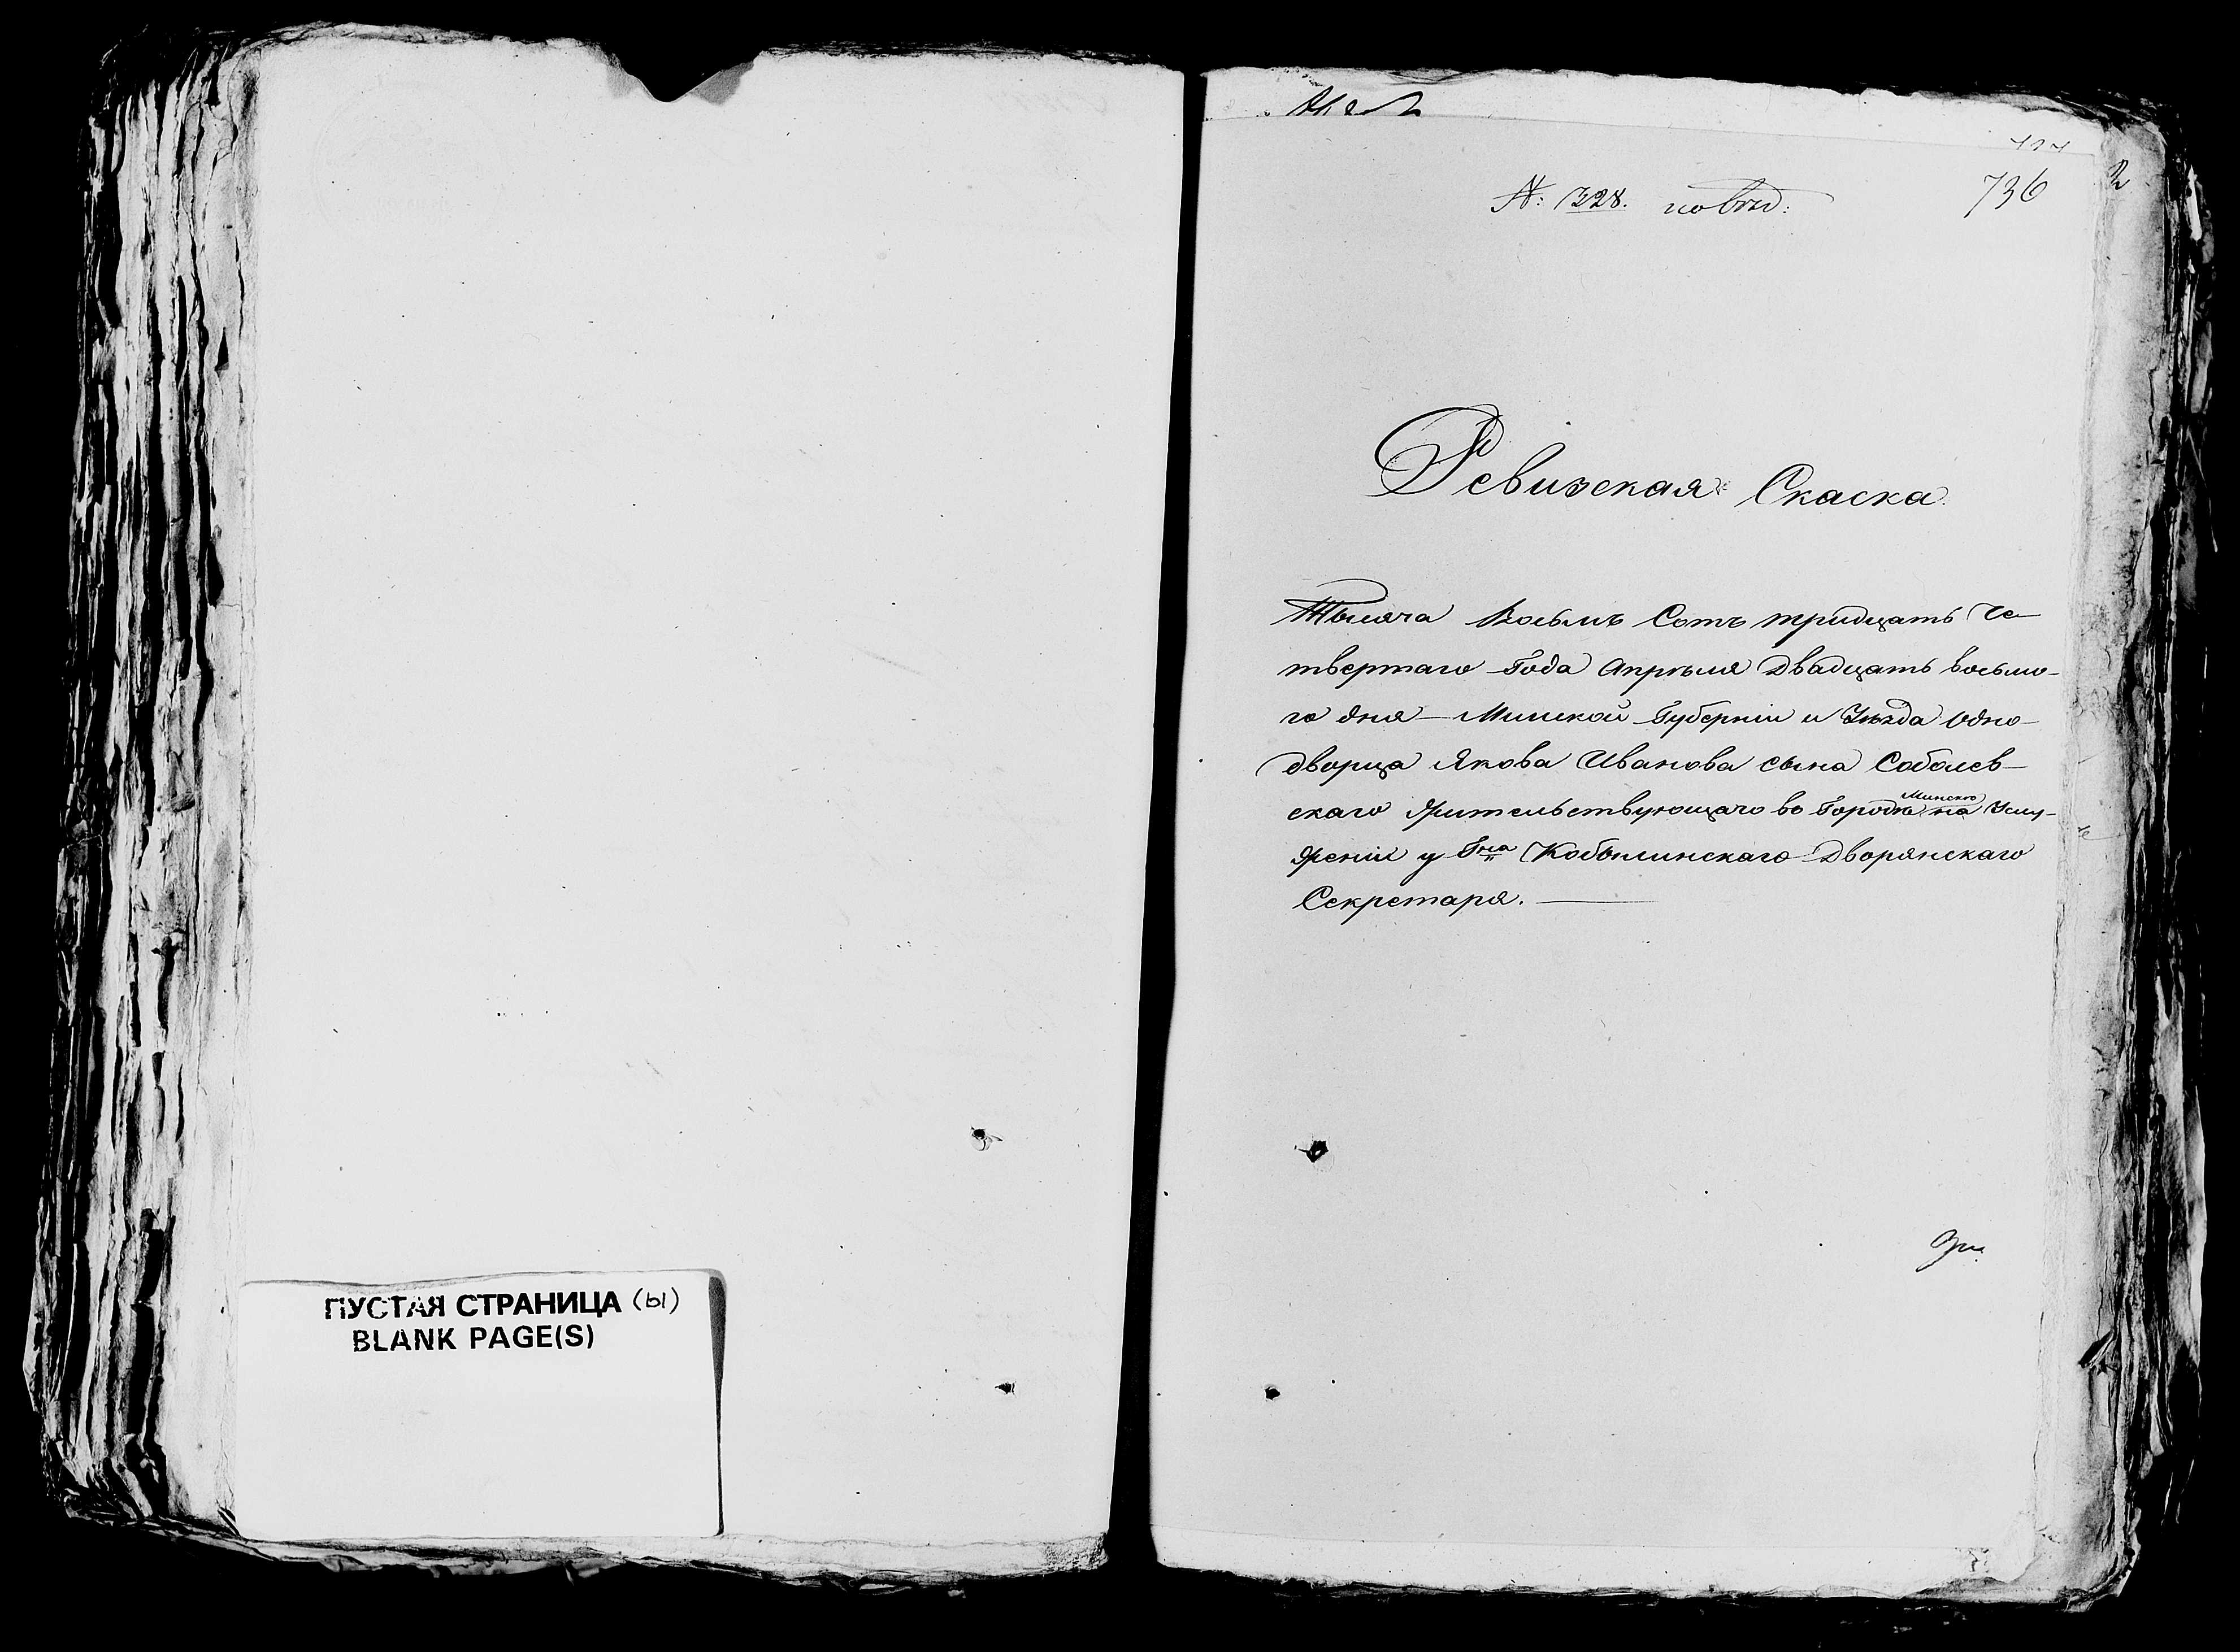 ПУСТАЯ СТРАНИЦА (ы)
BLANK PAGE(S)
736
№: 328.
Ревизская Скаска.
Тысяча Восьмъ Сотъ тридцать Че-
твертаго Года Апрѣля Двадцать восьмо-
го дня — Минской Губерніи и Уѣзда Одно-
дворца Якова Иванова сына Соболев-
скаго Жительствующаго во Городѣ Минскѣ на Услу-
женіи у Гна Кобылинскаго Дворянскаго
Секретаря.